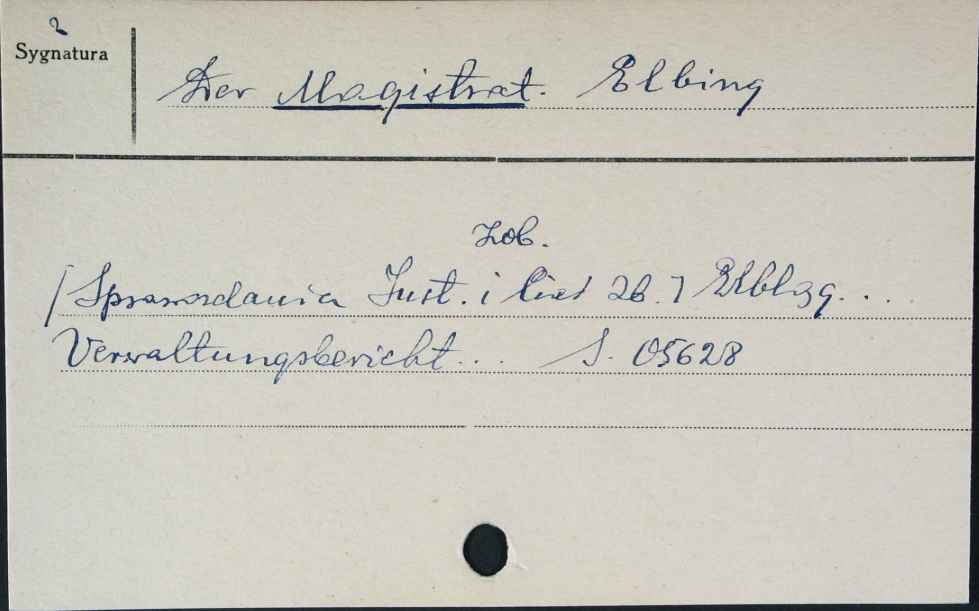 2
Sygnatura
Der Magistrat. Elbing
Zob.
/Sprawozdania Inst. i 26. 7 Elbląg....
Verwaltungsbericht... S. 05628